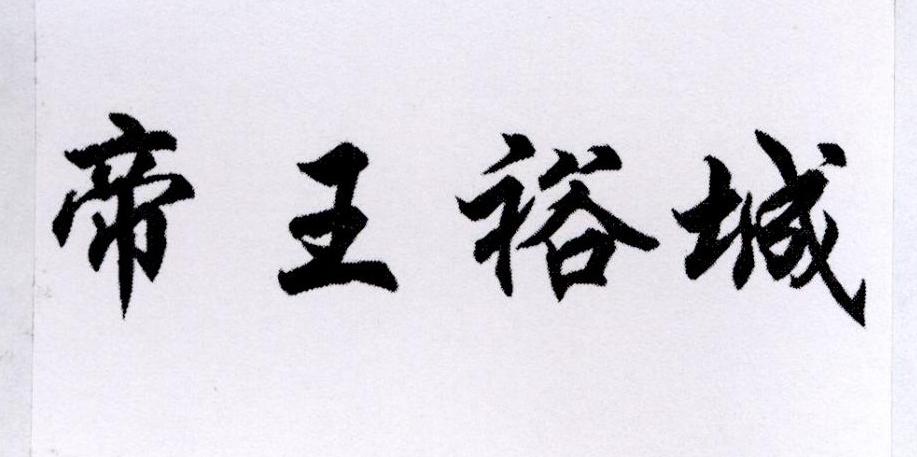 帝王裕城